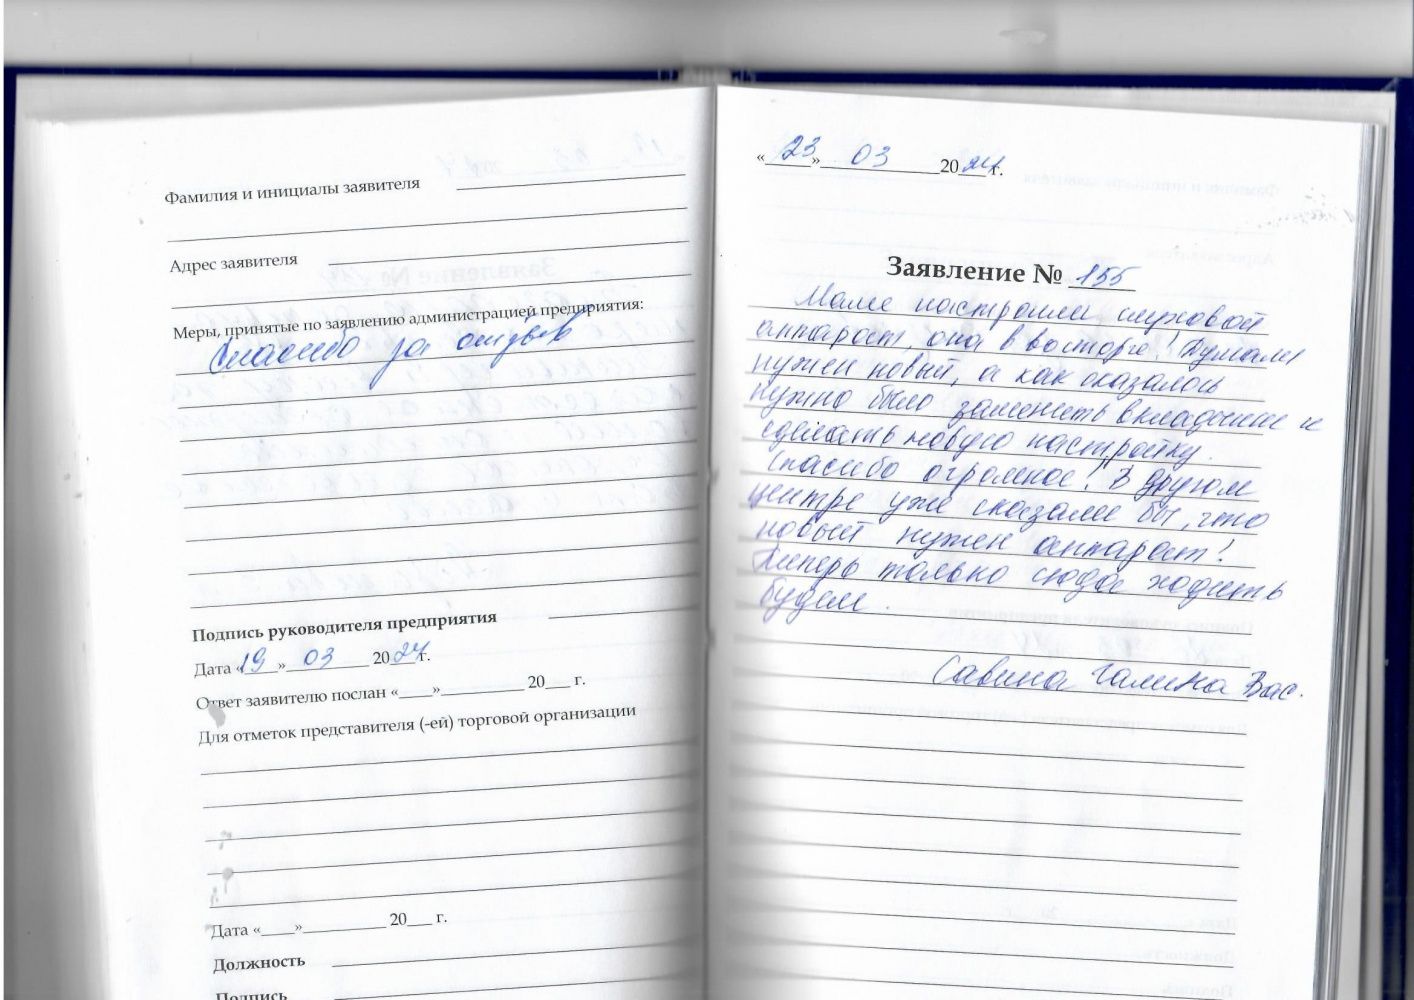 Фамилия и инициалы заявителя
Адрес заявителя
Меры, принятые по заявлению администрацией предприятия:
Спасибо за отзыв
Подпись руководителя предприятия
Дата «19» 03 2024 г.
Ответ заявителю послан «____»__________ 20___ г.
Для отметок представителя (-ей) торговой организации
Дата «____»__________ 20___ г.
Должность
Подпись
«23» 03 2024 г.
Заявление № 155
Маме настроили слуховой
аппарат, она в восторге! Думали
нужен новый, а как оказалось
нужно было заменить вкладыши и
сделать новую настройку.
Спасибо огромное! В другом
центре уже сказали бы, что
новый нужен аппарат!
Теперь только сюда ходить
будем.
Савина Галина Вас.